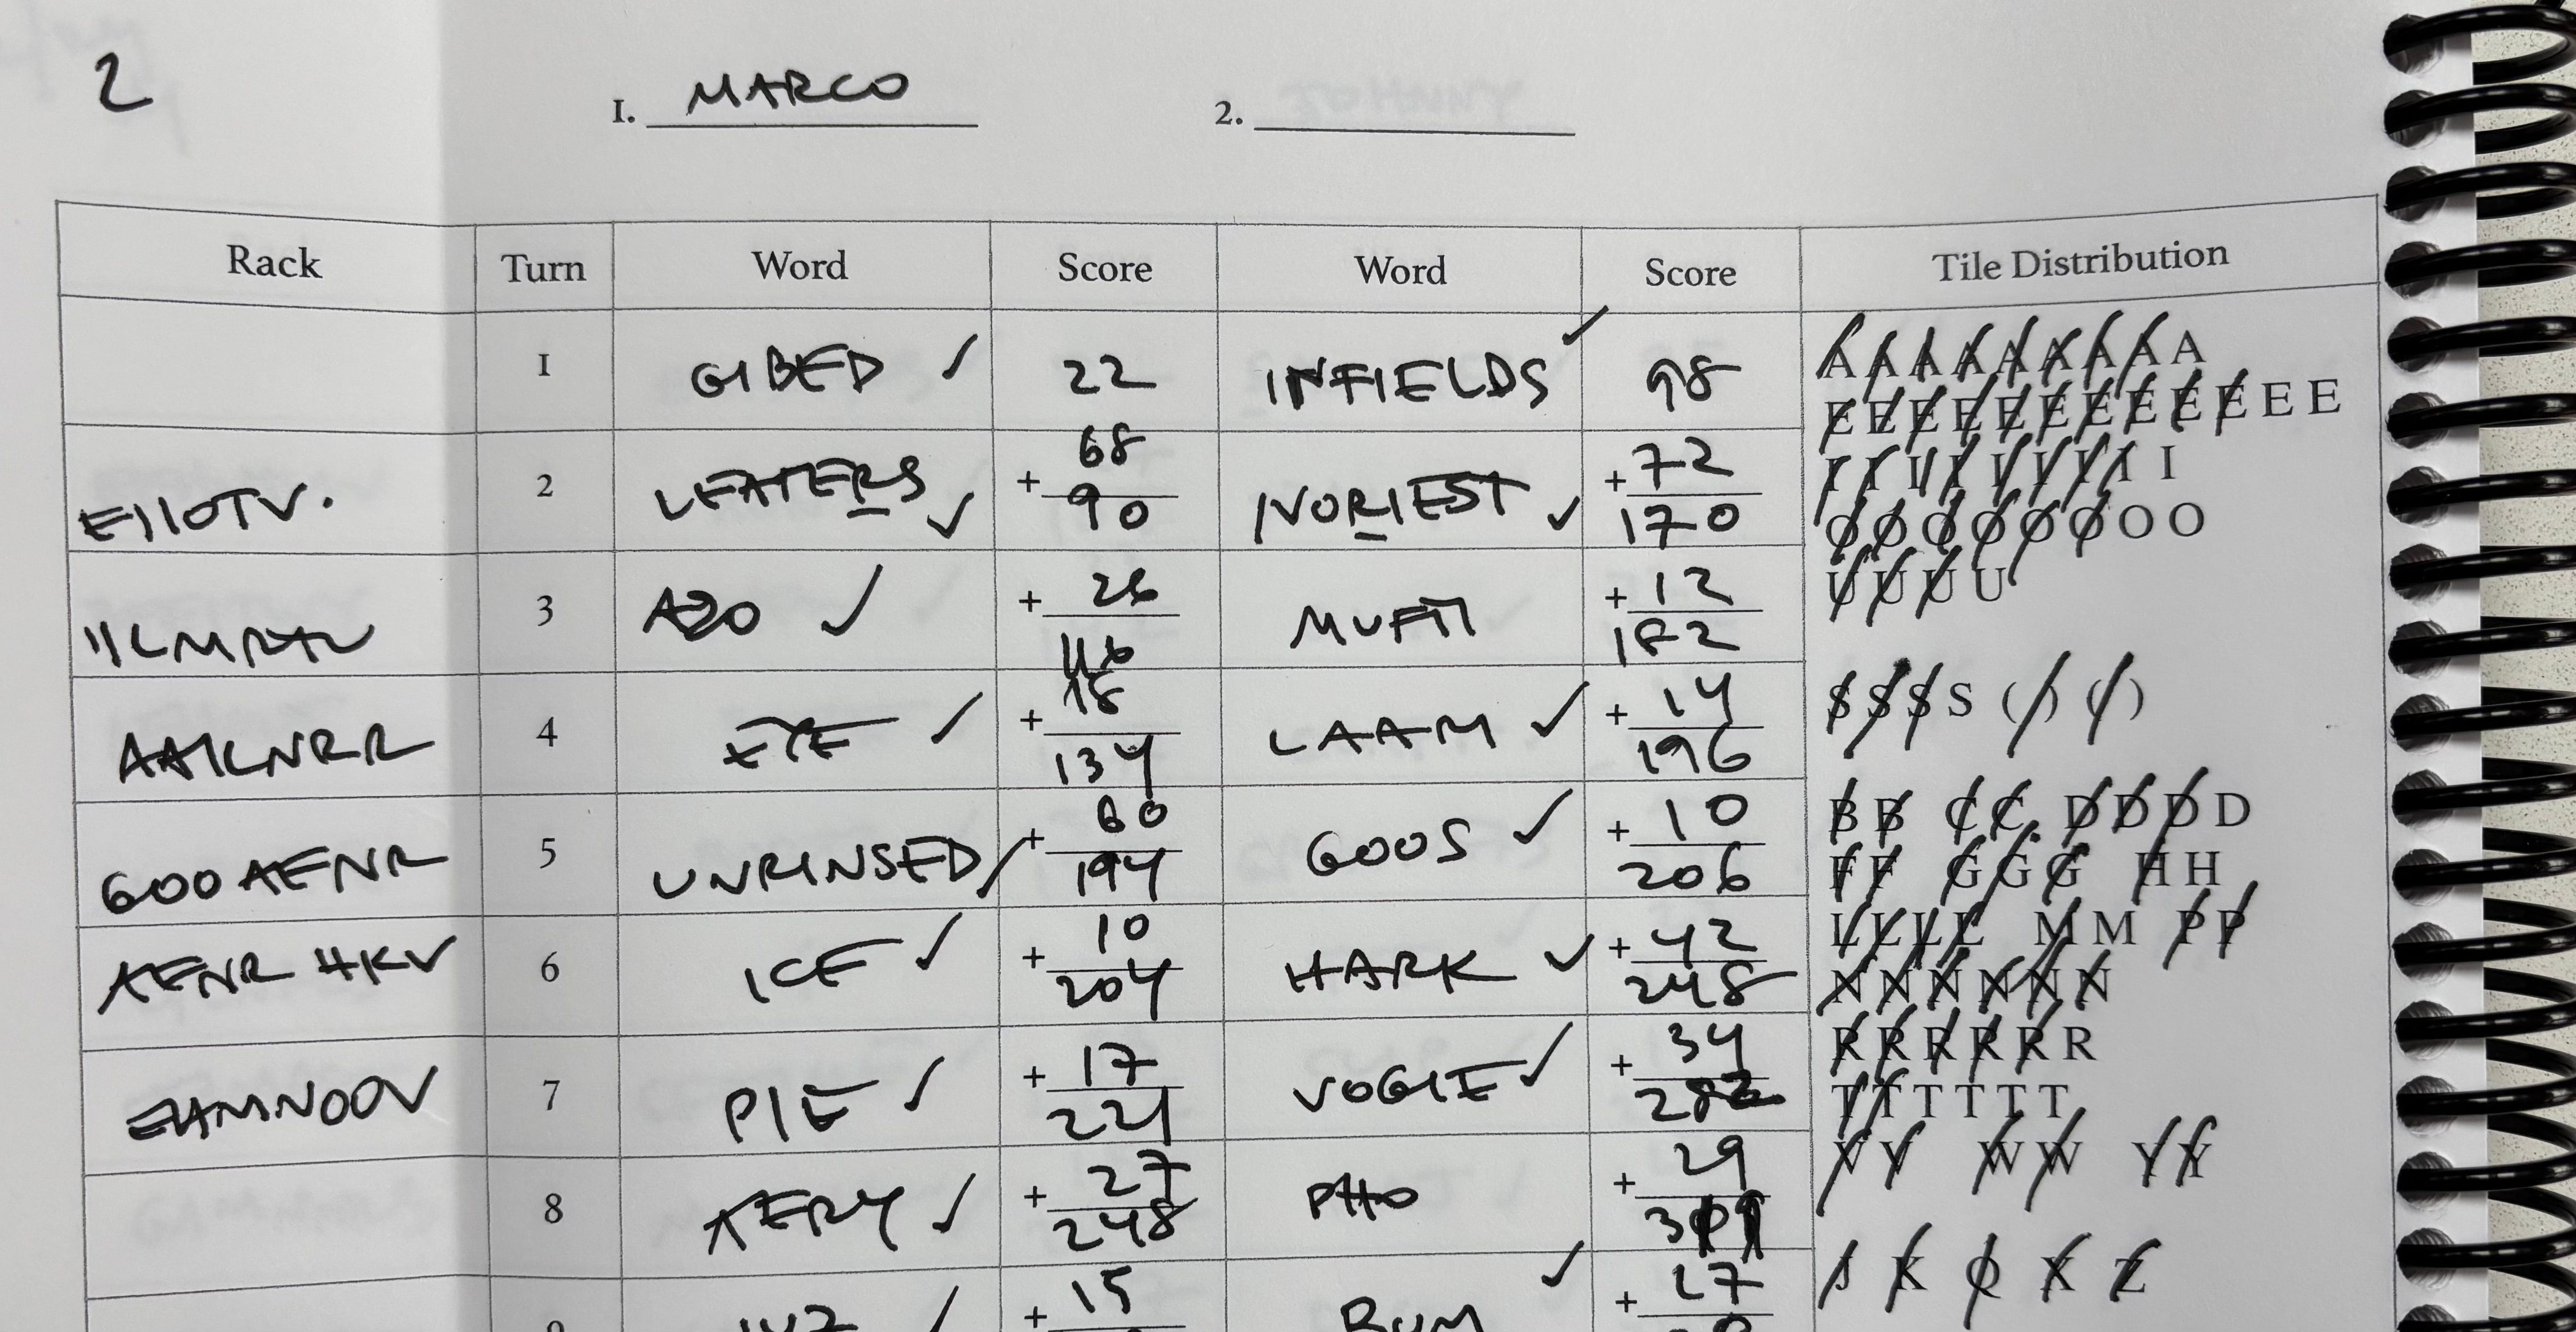 2
1. MARCO 2.
Rack Turn Word Score Word Score Tile Distribution
1 GIBED ✓ 22 INFIELDS ✓ 98
A A A A A A A A A
E E E E E E E E E E E E
EIIOTV. 2 LEATERS ✓ + 68 90 NORIEST ✓ + 72 170
I I I I I I I I I
O O O O O O O O
3 AZO ✓ + 26 116 MUFTI + 12 182
U U U U
4 EYE ✓ + 18 134 LAAM ✓ + 14 196
AAILNRR
S S S S ( ) ( )
GOOAENR 5 UNRINSED ✓ + 60 194 GOOS ✓ + 10 206
B B C C D D D D
F F G G G H H
AENR HKV 6 ICE ✓ + 10 204 HARK ✓ + 42 248
L L L L M M P P
N N N N N N
EAMNOOV 7 PIE ✓ + 17 221 VOGIE ✓ + 34 282
R R R R R R
T T T T T T
8 AERY ✓ + 27 248 PHO + 29
V V W W Y Y
9 ✓ + 15 BUM ✓ + 27
J K Q X Z